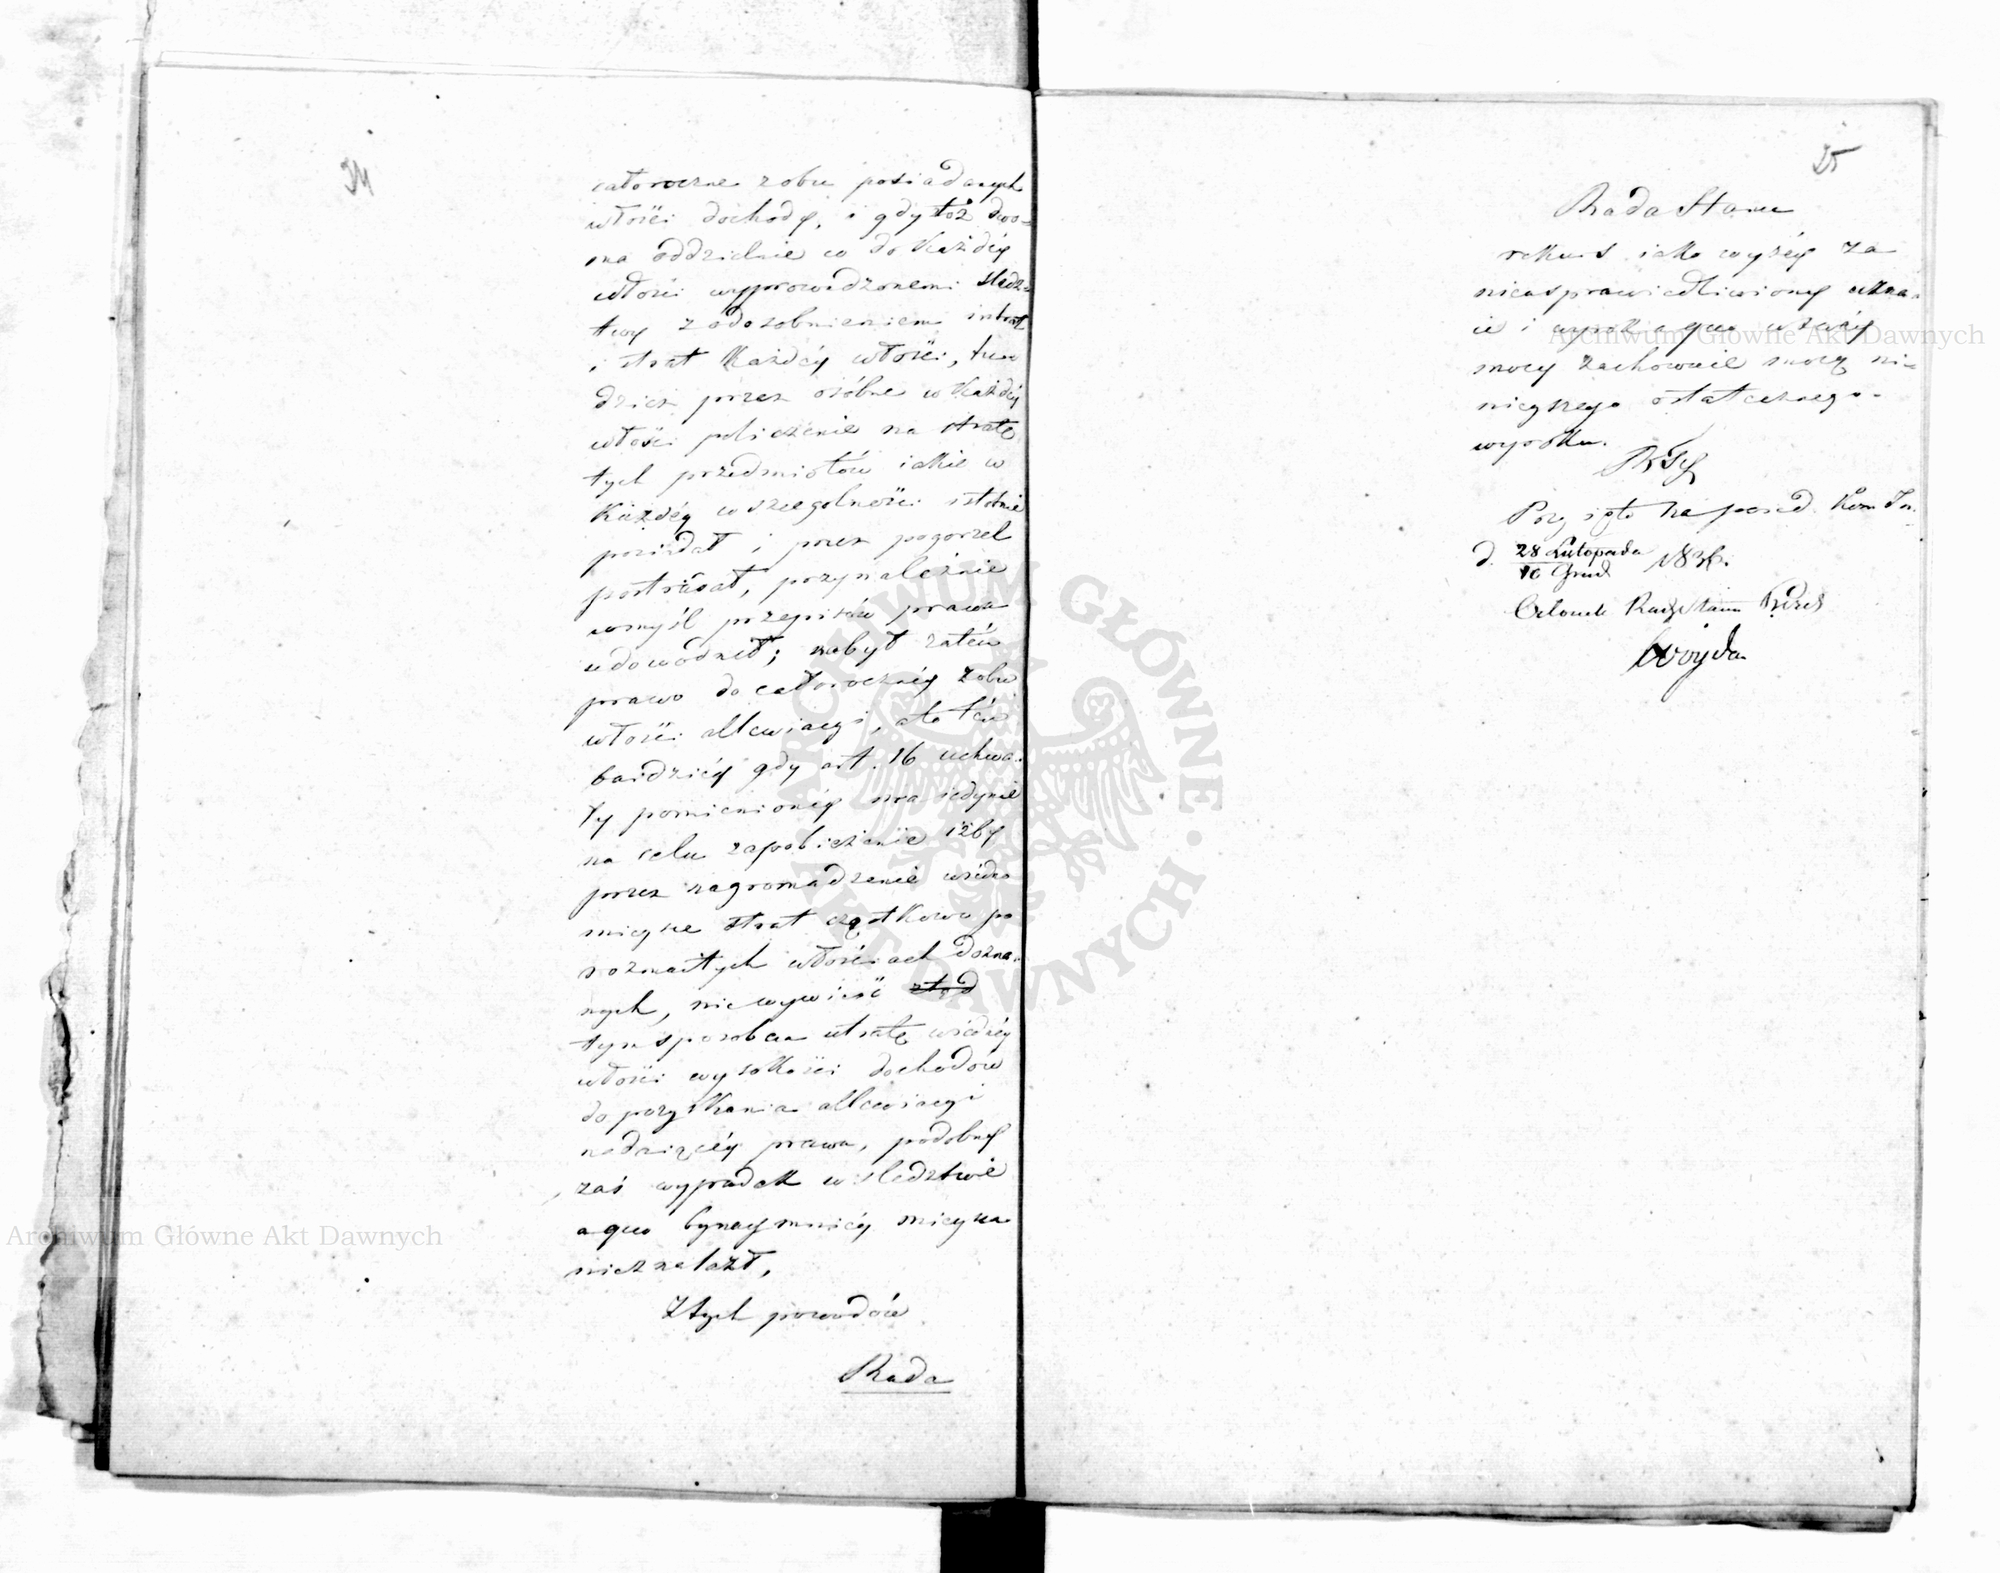 34
całoroczne z obu posiadanych
włości dochody, i gdy toż dwo-
ma oddzielnie co do każdéy
włości wyprowadzonemi śledz-
twy z odosobnieniem intrat
i strat każdéy włości, tu-
dzież przez osóbne w każdéy
włości policzenie na stratę
tych przedmiotów iakie w
każdéy w szczególności istotnie
posiadał i przez pogorzel
postradał, przynależnie
w myśl przepisów prawa
udowodnił; nabył zatém
prawo do całorocznéy z obu
włości allewiacyi, ile tém
bardziéy gdy art. 16 uchwa-
ły pomienionéy ma iedynie
na celu zapobieżenie iżby
przez nagromadzenie w iedno
mieysce strat cząstkowo po
rozmaitych włościach dozna-
nych, niewywieść ztąd
tym sposobem utratę w iednéy
włości wysokości dochodów
do pozyskania allewiacyi
nadaiącéy prawa, podobny
zaś wypadek w śledztwie
a quo bynaymniéy mieysca
nieznalazł,
Z tych powodów
Rada
35
Rada Stanu
rekurs iako wyżéy za
nieusprawiedliwiony uzna-
ie i wyrok a quo w swéy
mocy zachowuie mocą ni-
nieyszego ostatecznego
wyroku.
Przyięto na posied. Kom.
d. 28 Listopada 1836.
10 Grud
Członek Rady Stanu Prezes
Woyda
Archiwum Główne Akt Dawnych
Archiwum Główne Akt Dawnych
ARCHIWUM GŁÓWNE · AKT DAWNYCH ·